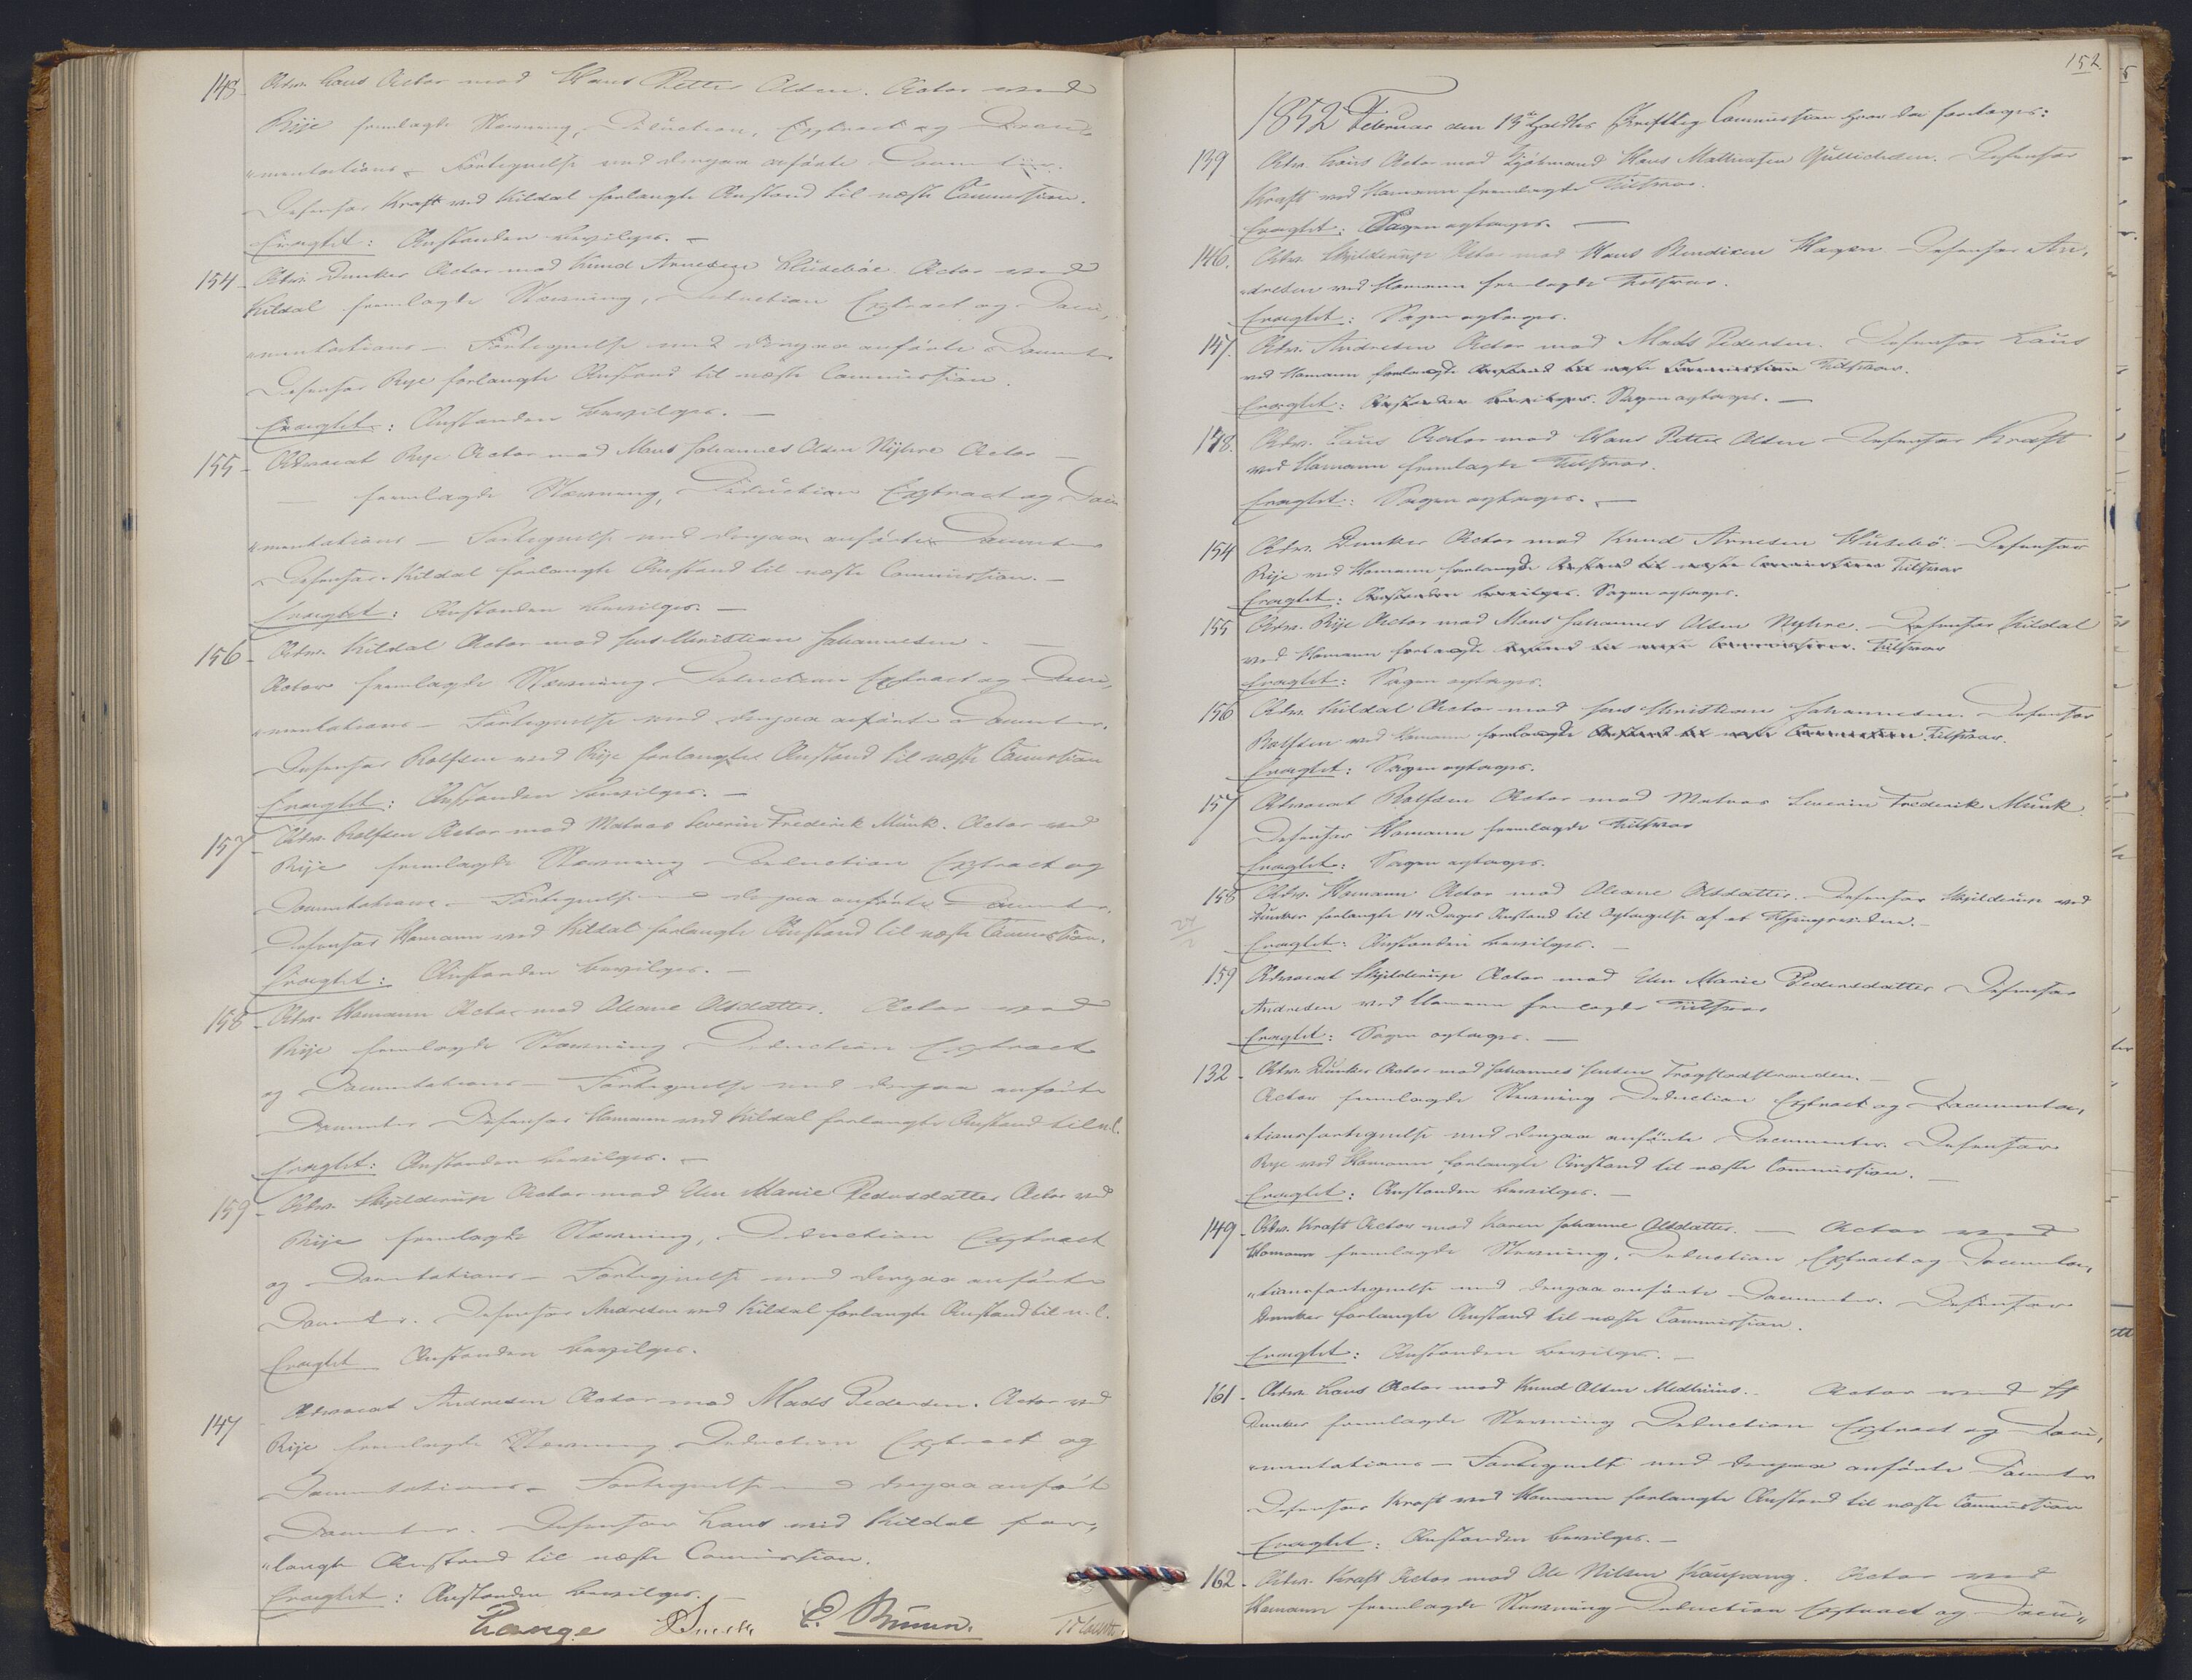 148 Adv. Laus Actor mod Hans Petter Olsen. Actor ved
Rije fremlagde Stævning, Deduction, Extract og Docu-
"mentations-Fortegnelse med derpaa anførte Documenter.
Defensor Kraft ved Kildal forlangte Anstand til næste Commission.
Eragtet: Anstanden bevilges. —
154 - Adv. Dunker Actor mod Knud Arnesen Actor ved
Kildal fremlagde Stævning, Deduction Extract og Docu,
"mentations - Fortegnelse med derpaa anførte Documenter
Defensor Rye forlangte Anstand til næste Commission.
Eragtet: Anstanden bevilges. —
155 - Advocat Rye Actor mod Mons Johannes Olsen Nyhre Actor —
— fremlagde Stævning, Deduction Extract og Docu
"mentations — Fortegnelse med derpaa anførte Documenter
Defensor Kildal forlangte Anstand til næste Commission. —
Eragtet: Anstanden bevilges. —
156 - Adv. Kildal Actor mod Jens Christian Johannesen - —
Actor fremlagde Stævning Deduction Extract og Docu,
"mentations - Fortegnelse med derpaa anførte Documenter.
Defensor Rolfsen ved Rije forlangte Anstand til næste Commission
Eragtet: Anstanden bevilges. —
157 - Adv. Rolfsen Actor mod Matros Severin Frederik Münk. Actor ved
Rije fremlagde Stævning Deduction Extract og
Documentations - Fortegnelse med derpaa anførte Documenter,
Defensor Homann ved Kildal forlangte Anstand til næste Commission.
Eragtet: Anstanden bevilges. —
158 - Adv. Homann Actor mod Oleane Olsdatter. Actor ved
Rije fremlagde Stævning Deduction Extract
og Documentations - Fortegnelse med derpaa anførte
Documenter Defensor Homann ved Kildal forlangte Anstand til n.C.
Eragtet: Anstanden bevilges. —
159 - Adv. Skjelderup Actor mod Elen Marie Pedersdatter Actor ved
Rije fremlagde Stævning, Deduction Extract
og Documentations - Fortegnelse med derpaa anførte
Documenter. Defensor Andresen ved Kildal forlangte Anstand til n.C.
Eragtet Anstanden bevilges.
147 - Advocat Andresen Actor mod Mads Pedersen. Actor ved
Rije fremlagde Stævning Deduction Extract og
Documentations - Fortegnelse med derpaa anførte
Documenter. Defensor Laus ved Kildal for,
"langte Anstand til næste Commission.
Eragtet: Anstanden bevilges. —
Lange E. Bruun.
152.
1852 Februar den 13de holdtes skriftlig Commission hvor da foretoges:
139 Adv. Laus Actor mod Sjømand Hans Mathiasen Gullichsen. Defensor
Kraft ved Homann fremlagde Tilsvar.
Eragtet: Sagen optages. —
146. Adv. Skjelderup Actor mod Hans Bendixen Hagen Defensor An,
"dresen ved Homann fremlagde Tilsvar.
Eragtet: Sagen optages.
147. Adv. Andresen Actor mod Mads Pedersen. Defensor Laus
ved Homann forlangte Anstand til næste Commission Tilsvar.
Eragtet: Anstanden bevilges. Sagen optages. —
148. Adv. Laus Actor mod Hans Petter Olsen Defensor Kraft
ved Homann fremlagde Tilsvar.
Eragtet: Sagen optages. —
154 Adv. Dunker Actor mod Knud Arnesen Defensor
Rije ved Homann forlangte Anstand til næste Commission Tilsvar
Eragtet: Anstanden bevilges. Sagen optages.
155 Adv. Rije Actor mod Mons Johannes Olsen Nyhre. Defensor Kildal
ved Homann forlangte Anstand til næste Commission. Tilsvar
Eragtet: Sagen optages.
156 Adv. Kildal Actor mod Jens Christian Johannesen. Defensor
Rolfsen ved Homann forlangte Anstand til næste Commission Tilsvar.
Eragtet: Sagen optages.
157 Advocat Rolfsen Actor mod Matros Severin Frederik Münk.
Defensor Homann fremlagde Tilsvar
Eragtet: Sagen optages.
158 Adv. Homann Actor mod Oleane Olsdatter. Defensor Skjelderup ved
Dunker forlangte 14 Dages Anstand til Optagelse af et Thingsvidne. -
27/2 Eragtet: Anstanden bevilges. —
159 Advocat Skjelderup Actor mod Elen Marie Pedersdatter Defensor
Andresen ved Homann fremlagde Tilsvar
Eragtet: Sagen optages. —
132 - Adv. Dunker Actor mod Johannes Jensen Trøgstadstranden. —
Actor fremlagde Stævning Deduction Extract og Documenta,
"tionsfortegnelse med derpaa anførte Documenter. Defensor
Rye ved Homann forlangte Anstand til næste Commission. —
Eragtet: Anstanden bevilges. —
149 - Adv. Kraft Actor mod Karen Johanne Olsdatter. — Actor ved
Homann fremlagde Stævning, Deduction Extract og Documenta,
"tionsfortegnelse med derpaa anførte Documenter. Defensor
Dunker forlangte Anstand til næste Commission.
Eragtet: Anstanden bevilges. —
161 - Adv. Laus Actor mod Knud Olsen Medhuus. Actor ved
Dunker fremlagde Stævning Deduction Extract og Docu,
"mentations - Fortegnelse med derpaa anførte Documenter
Defensor Kraft ved Homann forlangte Anstand til næste Commission
Eragtet: Anstanden bevilges. —
162 - Adv. Kraft Actor mod Ole Nilsen Kaupang. Actor ved
Homann fremlagde Stævning Deduction Extract og Docu„